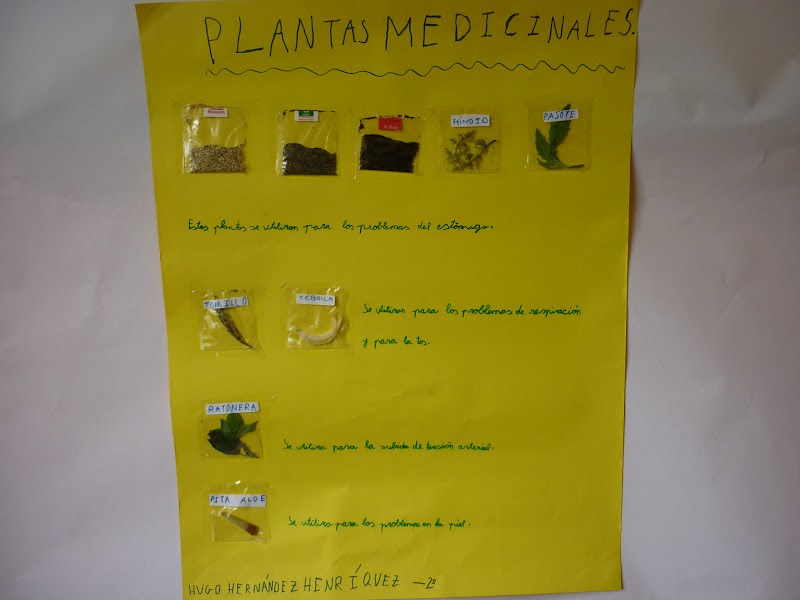 PLANTAS MEDICINALES.
HINOJO
PASOTE
Estas plantas se utilizan para los problemas del estómago.
TOMILLO
CEBOLLA
Se utilizan para los problemas de respiración
y para la tos.
RATONERA
Se utiliza para la subida de tensión arterial.
PITA ALOE
Se utiliza para los problemas en la piel.
HUGO HERNÁNDEZ HENRÍQUEZ —2º